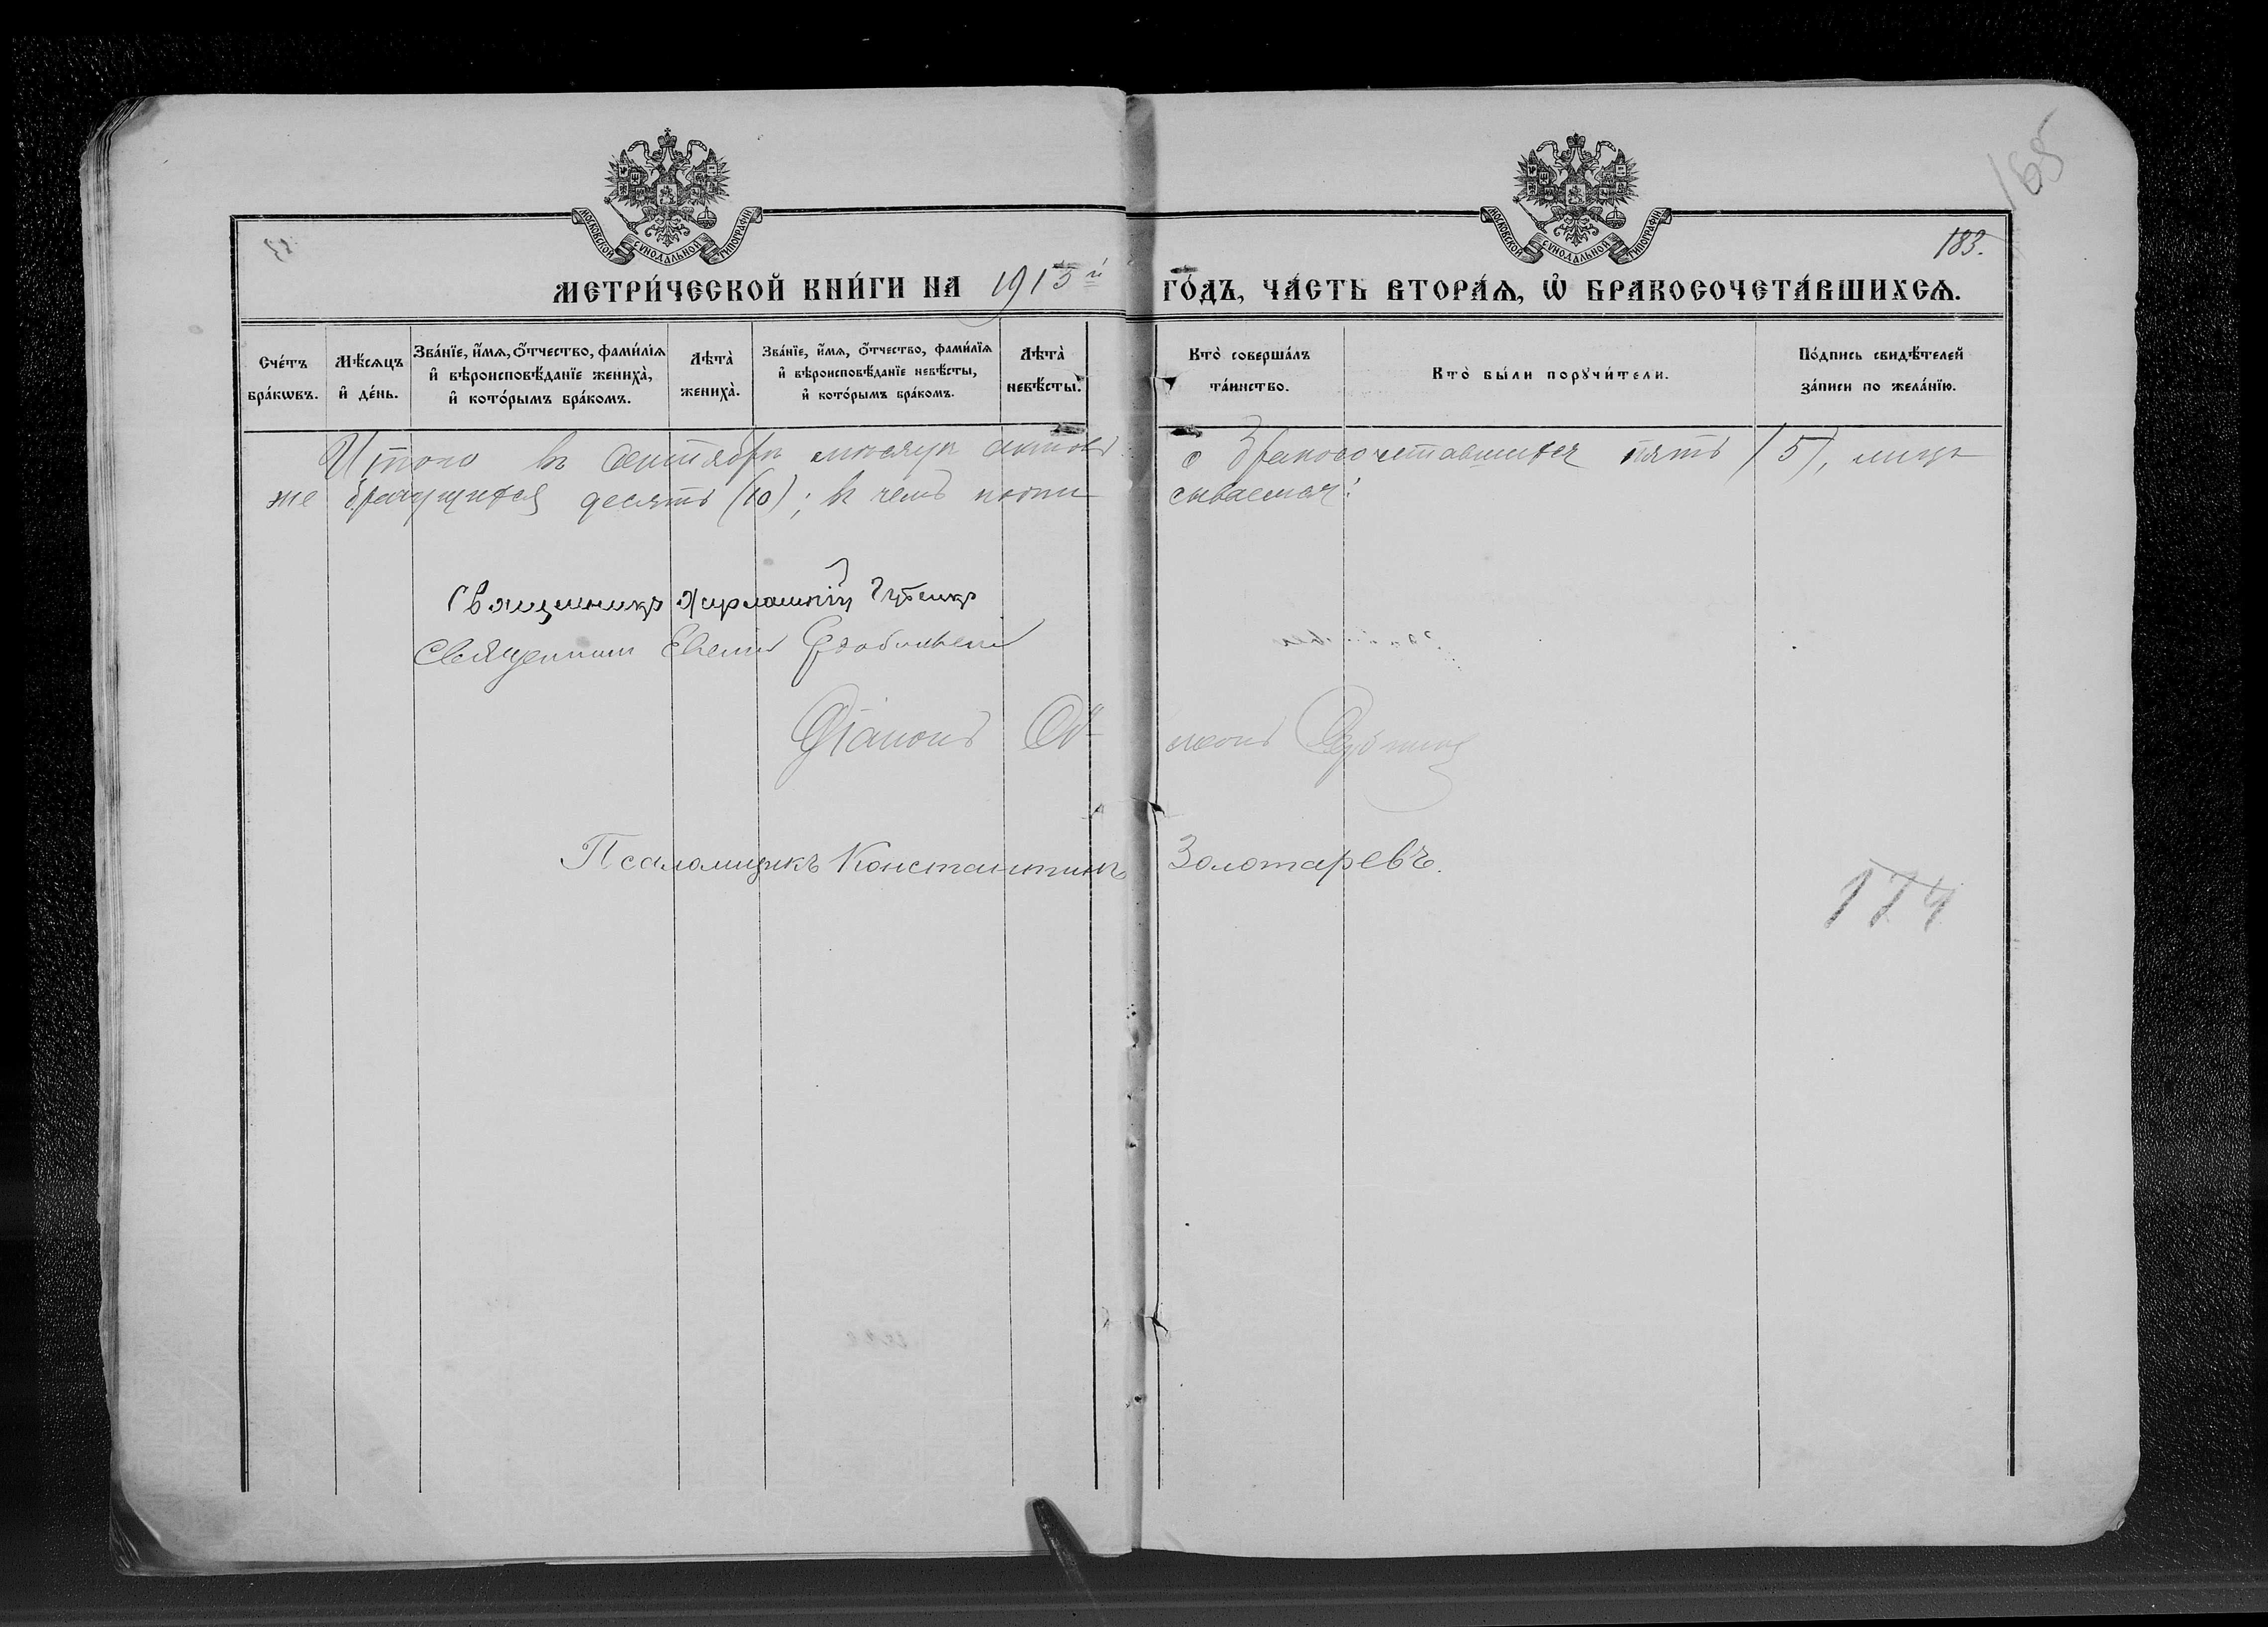 168
183.
МОСКОВСКОЙ СѴНОДАЛЬНОЙ ТИПОГРАФІИ
МОСКОВСКОЙ СѴНОДАЛЬНОЙ ТИПОГРАФІИ
МЕТРИ́ЧЕСКОЙ КНИ́ГИ НА 1913й ГО́ДЪ, ЧА́СТЬ ВТОРА́Ѧ, Ѡ БРАКОСОЧЕТА́ВШИХСѦ.
Сче́тъ бра́кѡвъ.
Мѣ́сѧцъ и҆ де́нь.
Зва́нїе, и҆́мѧ, ѻ҆́тчество, фами́лїѧ и҆ вѣроисповѣ́данїе жениха̀, и҆ кото́рымъ бра́комъ.
Лѣта̀ жениха̀.
Зва́нїе, и҆́мѧ, ѻ҆́тчество, фами́лїѧ и҆ вѣроисповѣ́данїе невѣ́сты, и҆ кото́рымъ бра́комъ.
Лѣта̀ невѣ́сты.
Кто̀ соверша́лъ та́инство.
Кто̀ бы́ли порꙋчи́тели.
По́дпись свидѣ́телей за́писи по жела́нїю.
Итого въ Сентябрѣ мѣсяцѣ актовъ о бракосочетавшихся пять (5), лицъ
же брачущихся десять (10); въ чемъ подписываемся:
Священникъ
Священникъ
Діаконъ
Псаломщикъ Константинъ Золотаревъ.
174